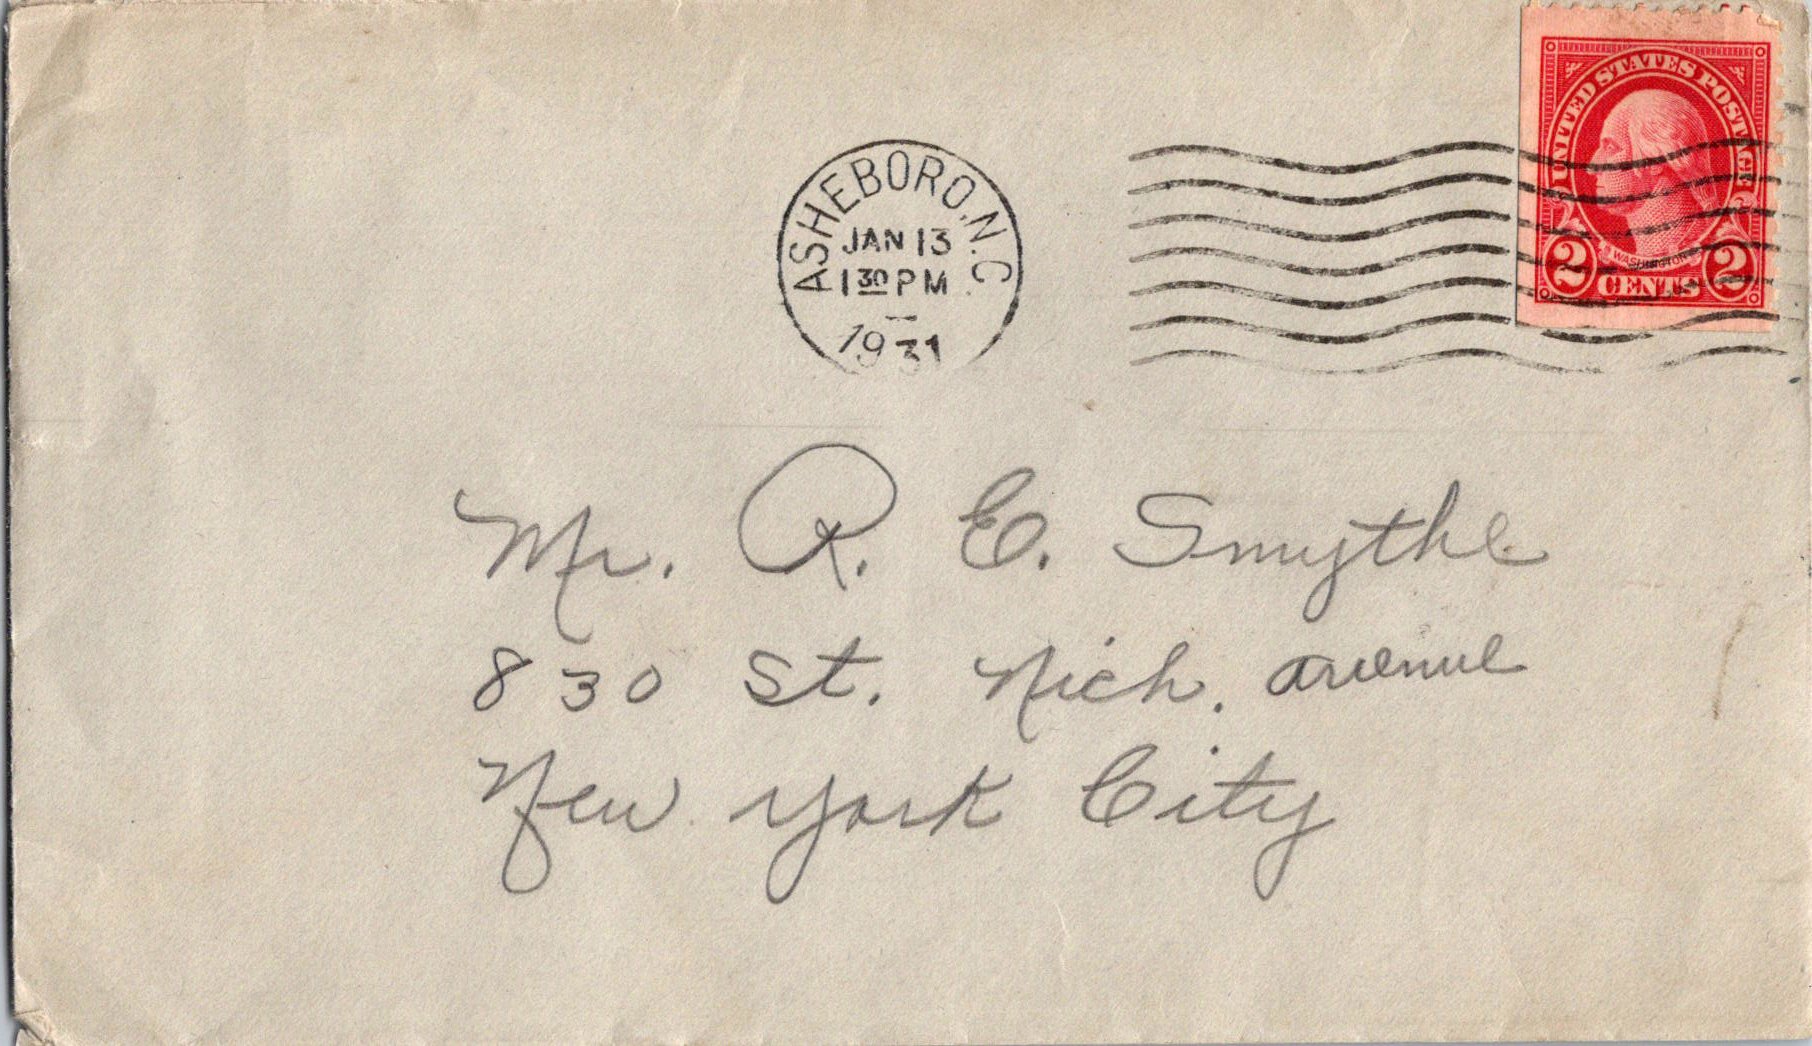 UNITED STATES POSTAGE
WASHINGTON
2 CENTS 2
ASHEBORO, N.C.
JAN 13
1 30 PM
1931
Mr. R. E. Smythe
830 St. Nich. avenue
New York City